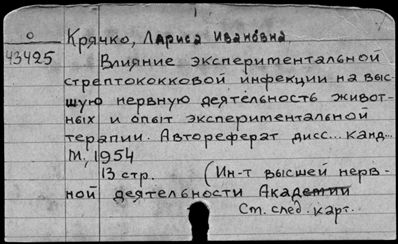 О
43425
Крячко, Лариса Ивановна
Влияние экспериментальной
стрептококковой инфекции на выс-
шую нервную деятельность живот-
ных и опыт экспериментальной
терапии. Автореферат дисс... канд...
М., 1954
13 стр. (Ин-т высшей нерв-
ной деятельности Академии
См. след. карт.